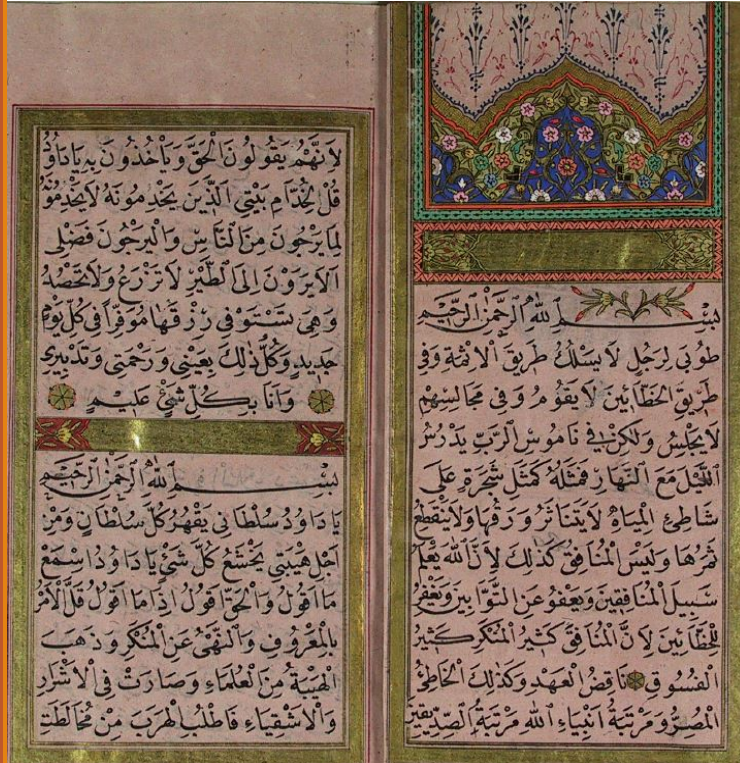 بِسْمِ اللّٰهِ الرَّحْمٰنِ الرَّحِيْمِ
طُوبٰى لِرَجُلٍ لَا يَسْلُكُ طَرِيْقَ الْاَثِمَةِ وَفِي
طَرِيْقِ الْخَطَّائِيْنَ لَا يَقُوْمُ وَفِي مَجَالِسِهِمْ
لَا يَجْلِسُ وَلٰكِنْ فِي نَامُوسِ الرَّبِّ يَدْرُسُ
اللَّيْلَ مَعَ النَّهَارِ فَمَثَلُهُ كَمَثَلِ شَجَرَةٍ عَلٰى
شَاطِئِ الْمِيَاهِ لَا يَتَنَاثَرُ وَرَقُهَا وَلَا يَنْقَطِعُ
ثَمَرُهَا وَلَيْسَ الْمُنَافِقُ كَذٰلِكَ لِاَنَّ اللّٰهَ يَعْلَمُ
سَبِيلَ الْمُنَافِقِينَ وَيَعْفُو عَنِ التَّوَّابِينَ وَيَغْفِرُ
لِلْخَطَّائِينَ لِاَنَّ الْمُنَافِقَ كَثِيرُ الْمُنْكَرِ كَثِيرُ
الْفُسُوقِ نَاقِضُ الْعَهْدِ وَكَذٰلِكَ الْخَاطِئُ
الْمُصِرُّ وَمَرْتَبَةُ اَنْبِيَاءِ اللّٰهِ مَرْتَبَةُ الصِّدِّيقِينَ
لِاَنَّهُمْ يَقُولُونَ الْحَقَّ وَيَأْخُذُونَ بِهِ يَا دَاوُدُ
قُلْ لِخُدَّامِ بَيْتِي الَّذِينَ يَخْدِمُونَهُ لَا يَخْدِمُونَهُ
لِمَا يَرْجُونَ مِنَ النَّاسِ وَالْيَرْجُونَ فَضْلِي
اَلَا يَرَوْنَ اِلَى الطَّيْرِ لَا تَزْرَعُ وَلَا تَحْصُدُ
وَهِيَ تَسْتَوْفِي رِزْقَهَا مُوَفَّرًا فِي كُلِّ يَوْمٍ
جَدِيدٍ وَكُلُّ ذٰلِكَ بِعَيْنِي وَرَحْمَتِي وَتَدْبِيرِي
وَاَنَا بِكُلِّ شَيْءٍ عَلِيمٌ
بِسْمِ اللّٰهِ الرَّحْمٰنِ الرَّحِيمِ
يَا دَاوُدُ سُلْطَانِي يَقْهَرُ كُلَّ سُلْطَانٍ وَمِنْ
اَجْلِ هَيْبَتِي يَخْشَعُ كُلُّ شَيْءٍ يَا دَاوُدُ اسْمَعْ
مَا اَقُولُ وَالْحَقَّ اَقُولُ اِذَا مَا اَقُولُ قَلَّ الْاَمْرُ
بِالْمَعْرُوفِ وَالنَّهْيُ عَنِ الْمُنْكَرِ وَذَهَبَ
الْهَيْبَةُ مِنَ الْعُلَمَاءِ وَصَارَتْ فِي الْاَشْرَارِ
وَالْاَشْقِيَاءِ فَاطْلُبِ الْهَرَبَ مِنْ مُخَالَطَةِ